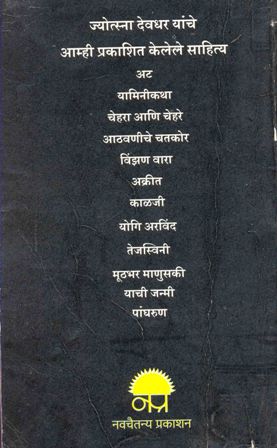 ज्योत्स्ना देवधर यांचे
आम्ही प्रकाशित केलेले साहित्य
अट
यामिनीकथा
चेहरा आणि चेहरे
आठवणीचे चतकोर
विंझण वारा
अक्रीत
काळजी
योगि अरविंद
तेजस्विनी
मूठभर माणुसकी
याची जन्मी
पांघरुण
नप्र
नवचैतन्य प्रकाशन